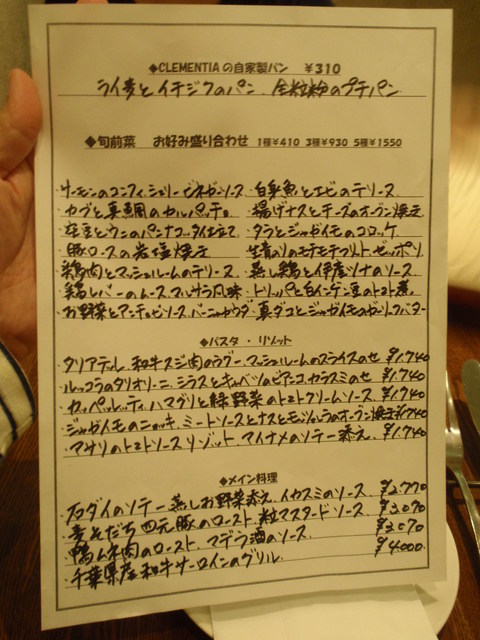 ◆CLEMENTIAの自家製パン ¥310
ライ麦とイチジクのパン、全粒粉のプチパン
◆旬前菜 お好み盛り合わせ 1種¥410 3種¥930 5種¥1550
・サーモンのコンフィ、シェリービネガーソース ・白身魚とエビのテリーヌ
・カブと真鯛のカルパッチョ ・揚げナスとチーズのオーブン焼き
・枝豆とウニのパンナコッタ仕立て ・タラとジャガイモのコロッケ
・豚ロースの岩塩焼き ・生青のりのモチモチフリット、ゼッポリ
・鶏肉とマッシュルームのテリーヌ ・蒸し鶏と伊産ツナのソース
・鶏レバーのムース、マルサラ風味 ・トリッパと白インゲン豆のトマト煮
・お野菜とアンチョビソース、バーニャカウダ ・真ダコとジャガイモのガーリックバター
◆パスタ・リゾット
・タリアテッレ、和牛スジ肉のラグー、マッシュルームのスライスのせ ¥1.740
・ルッコラのタリオリーニ、シラスとキャベツのビアンコ、カラスミのせ ¥1.740
・カッペレッティ、ハマグリと緑野菜のトマトクリームソース ¥1.740
・ジャガイモのニョッキ、ミートソースとナスとモッツァレラのオーブン焼き ¥1.740
・アサリのトマトソースリゾット、アイナメのソテー添え ¥1.740
◆メイン料理
・石ダイのソテー 蒸しお野菜添え、イカスミのソース ¥2.770
・麦そだち四元豚のロースト、粒マスタードソース ¥3.070
・鴨ムネ肉のロースト、マデラ酒のソース ¥3.070
・千葉県産和牛サーロインのグリル ¥4.000